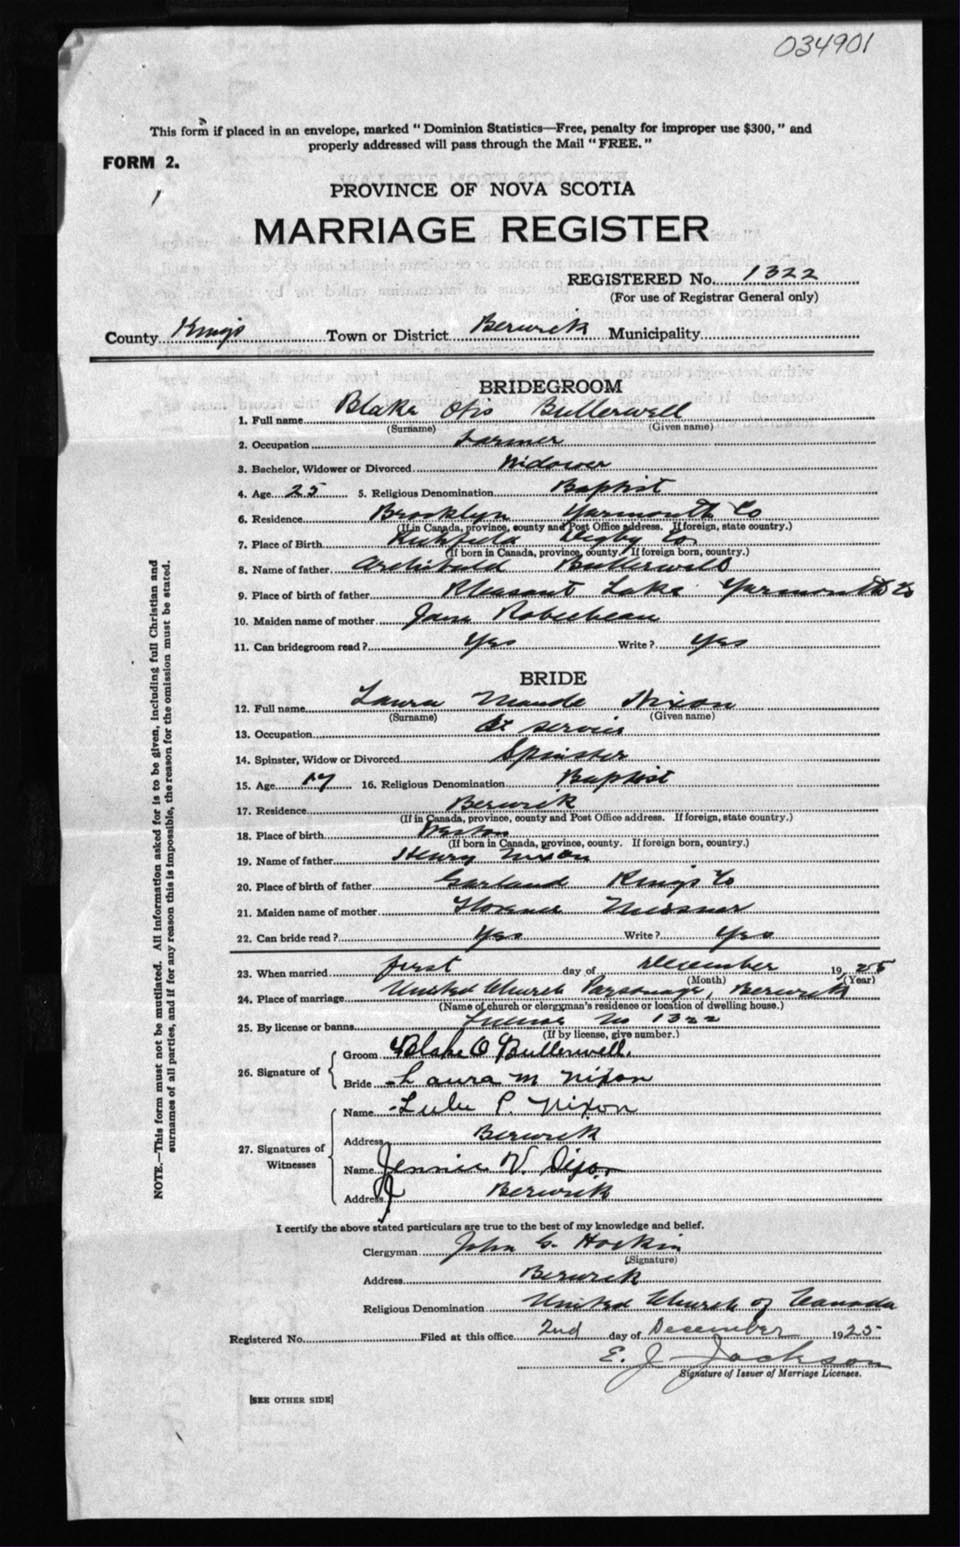 034901
This form if placed in an envelope, marked "Dominion Statistics—Free, penalty for improper use $300," and
properly addressed will pass through the Mail "FREE."
FORM 2.
PROVINCE OF NOVA SCOTIA
MARRIAGE REGISTER
REGISTERED No. 1322
(For use of Registrar General only)
County Kings Town or District Berwick Municipality
BRIDEGROOM
1. Full name Blake Otis Butterwell
(Surname) (Given name)
2. Occupation Farmer
3. Bachelor, Widower or Divorced Widower
4. Age 25 5. Religious Denomination Baptist
6. Residence Brooklyn Yarmouth Co
(If in Canada, province, county and Post Office address. If foreign, state country.)
7. Place of Birth Richfield Digby Co.
(If born in Canada, province, county. If foreign born, country.)
8. Name of father Archibald Butterwell
9. Place of birth of father Pleasant Lake Yarmouth Co
10. Maiden name of mother Jane
11. Can bridegroom read? Yes Write? Yes
BRIDE
12. Full name Laura Maude Nixon
(Surname) (Given name)
13. Occupation At service
14. Spinster, Widow or Divorced Spinster
15. Age 17 16. Religious Denomination Baptist
17. Residence Berwick
(If in Canada, province, county and Post Office address. If foreign, state country.)
18. Place of birth Weston
(If born in Canada, province, county. If foreign born, country.)
19. Name of father Henry Nixon
20. Place of birth of father Garland Kings Co
21. Maiden name of mother Florence Meisner
22. Can bride read? Yes Write? Yes
23. When married first day of December 1925
(Month) (Year)
24. Place of marriage United Church Parsonage, Berwick
(Name of church or clergyman's residence or location of dwelling house.)
25. By license or banns License No 1322
(If by license, give number.)
26. Signature of Groom Blake O Butterwell.
Bride Laura M Nixon
27. Signatures of Witnesses Name Lulu P. Nixon
Address Berwick
Name Jennie V.
Address Berwick
I certify the above stated particulars are true to the best of my knowledge and belief.
Clergyman John G. Hockin
(Signature)
Address Berwick
Religious Denomination United Church of Canada
Registered No. Filed at this office 2nd day of December 1925
E. J. Jackson
Signature of Issuer of Marriage Licenses.
[SEE OTHER SIDE]
NOTE.—This form must not be mutilated. All information asked for is to be given, including full Christian and
surnames of all parties, and if for any reason this is impossible, the reason for the omission must be stated.